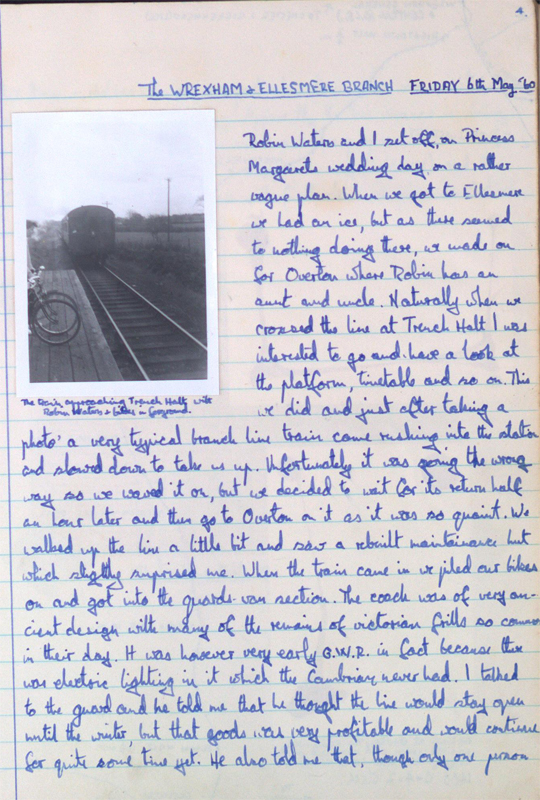 4.
The WREXHAM & ELLESMERE BRANCH FRIDAY 6th May '60
Robin Waters and I set off, on Princess
Margarets wedding day, on a rather
vague plan. When we got to Ellesmere
we had an ice, but as there seemed
to nothing doing there, we made on
for Overton where Robin has an
aunt and uncle. Naturally when we
crossed the line at Trench Halt I was
interested to go and have a look at
the platform, timetable and so on. This
we did and just after taking a
The train approaching Trench Halt with
Robin Waters & bikes in foreground.
photo' a very typical branch line train came rushing into the station
and slowed down to take us up. Unfortunately it was going the wrong
way so we waved it on, but we decided to wait for its return half
an hour later and then go to Overton on it as it was so quaint. We
walked up the line a little bit and saw a rebuilt maintainance hut
which slightly surprised me. When the train came in we piled our bikes
on and got into the guards-van section. The coach was of very an-
cient design with many of the remains of victorian frills so common
in their day. It was however very early G.W.R. in fact because there
was electric lighting in it which the Cambrian never had. I talked
to the guard and he told me that he thought the line would stay open
until the winter, but that goods was very profitable and would continue
for quite some time yet. He also told me that, though only one person